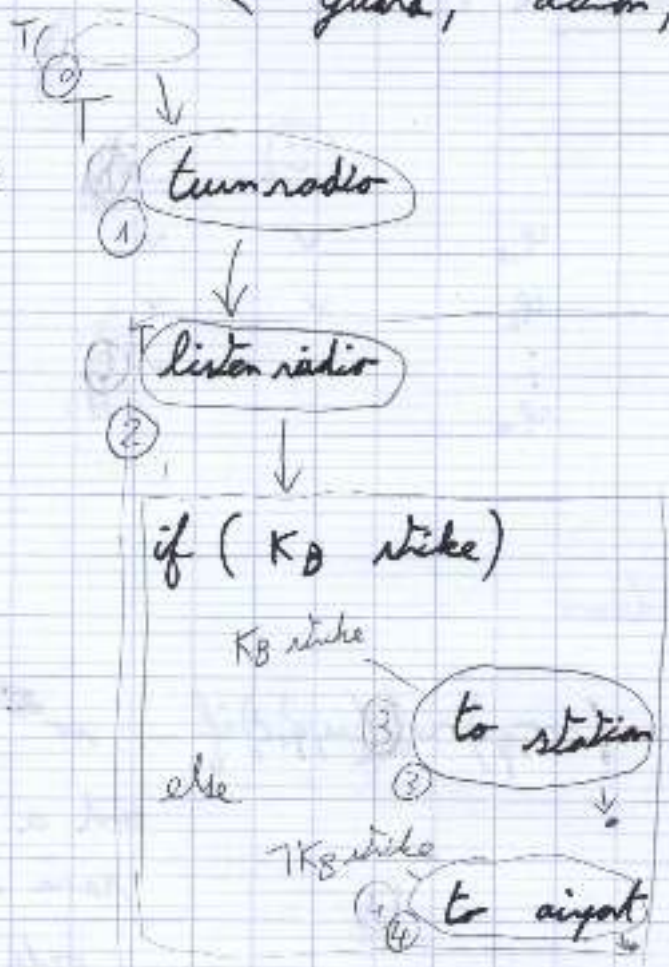 ( guard, action,
T(
0
T
turn radio
1
T
listen radio
2
if ( K_B strike)
K_B strike
to station
3
else
¬K_B strike
to airport
4